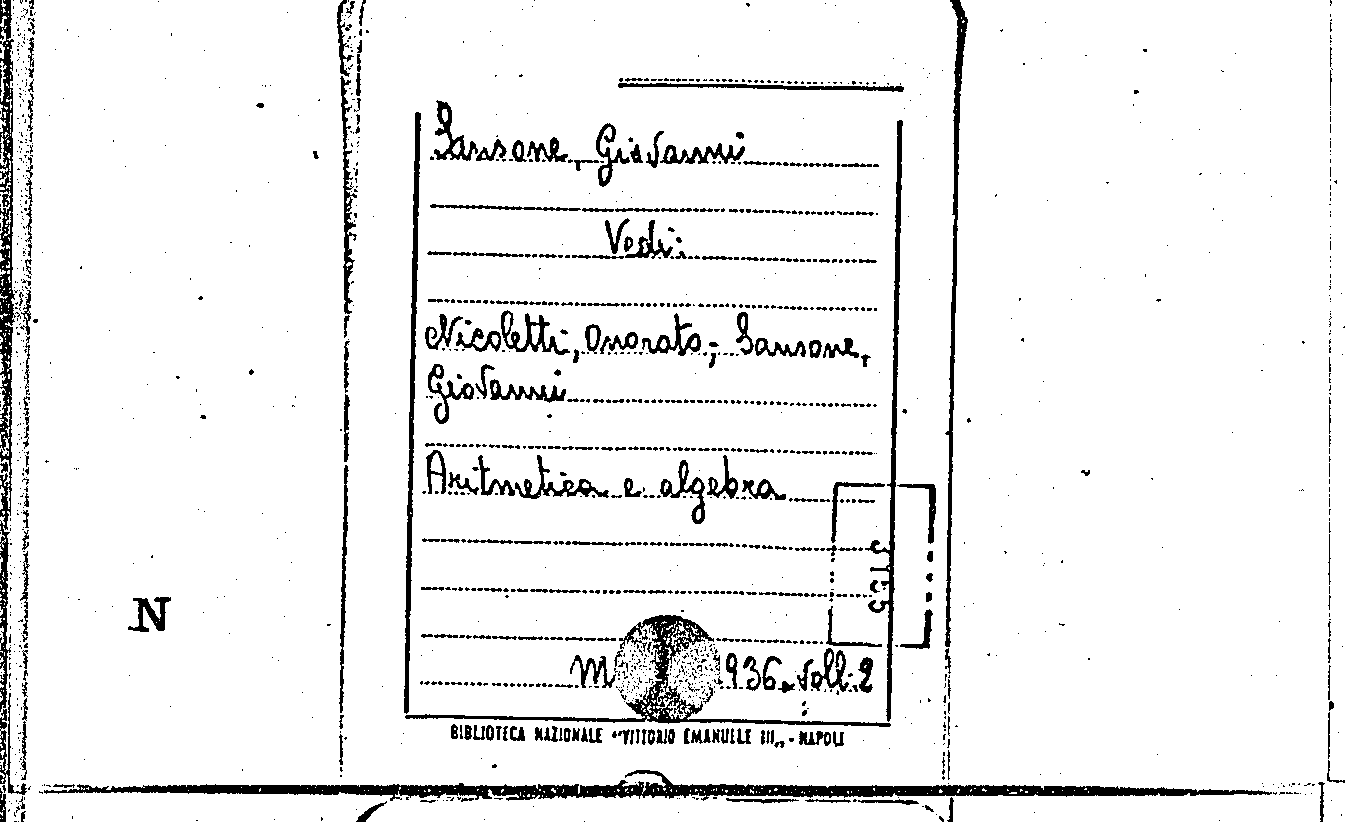 Sansone, Giovanni
Vedi:
Nicoletti, Onorato; Sansone,
Giovanni
Aritmetica e algebra
3155
N
936. voll. 2
BIBLIOTECA NAZIONALE "VITTORIO EMANUELE III„ - NAPOLI